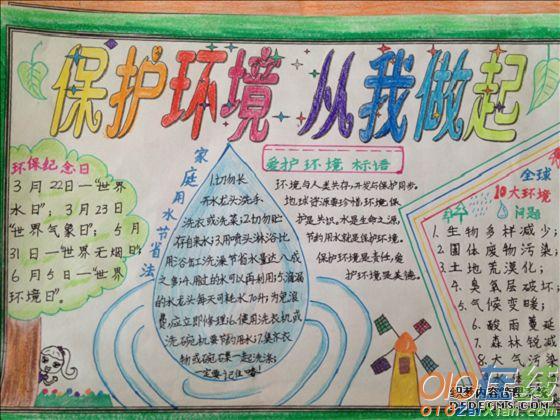 保护环境 从我做起
环保纪念日
3月22日—“世界
水日”；3月23日
“世界气象日”；5月
31日—“世界无烟日”
6月5日—“世界
环境日”。
家庭用水节省法
1.切勿长
开水龙头洗手、
洗衣或洗菜;2.切勿贮
存自来水;3.用喷头淋浴比
用浴缸洗澡节省水量达八成
之多;4.用过的水可以再利用;5.滴漏
的水龙头每天可耗水70升,为免浪
费,应立即修理;6.使用洗衣机或
洗碗机节约用水;7.集齐衣
物或碗碟一起洗涤;
一定要记住噢!
爱护环境标语
环境与人类共存,开发与保护同步。
地球资源要珍惜,环境保
护是共识。水是生命之源,
节约用水就是保护环境。
保护环境是责任,爱
护环境是美德。
全球
10大环境
问题
1.生物多样减少;
2.固体废物污染;
3.土地荒漠化;
4.臭氧层破坏
5.气候变暖;
6.酸雨蔓延
7.森林锐减
8.大气污染
010在线